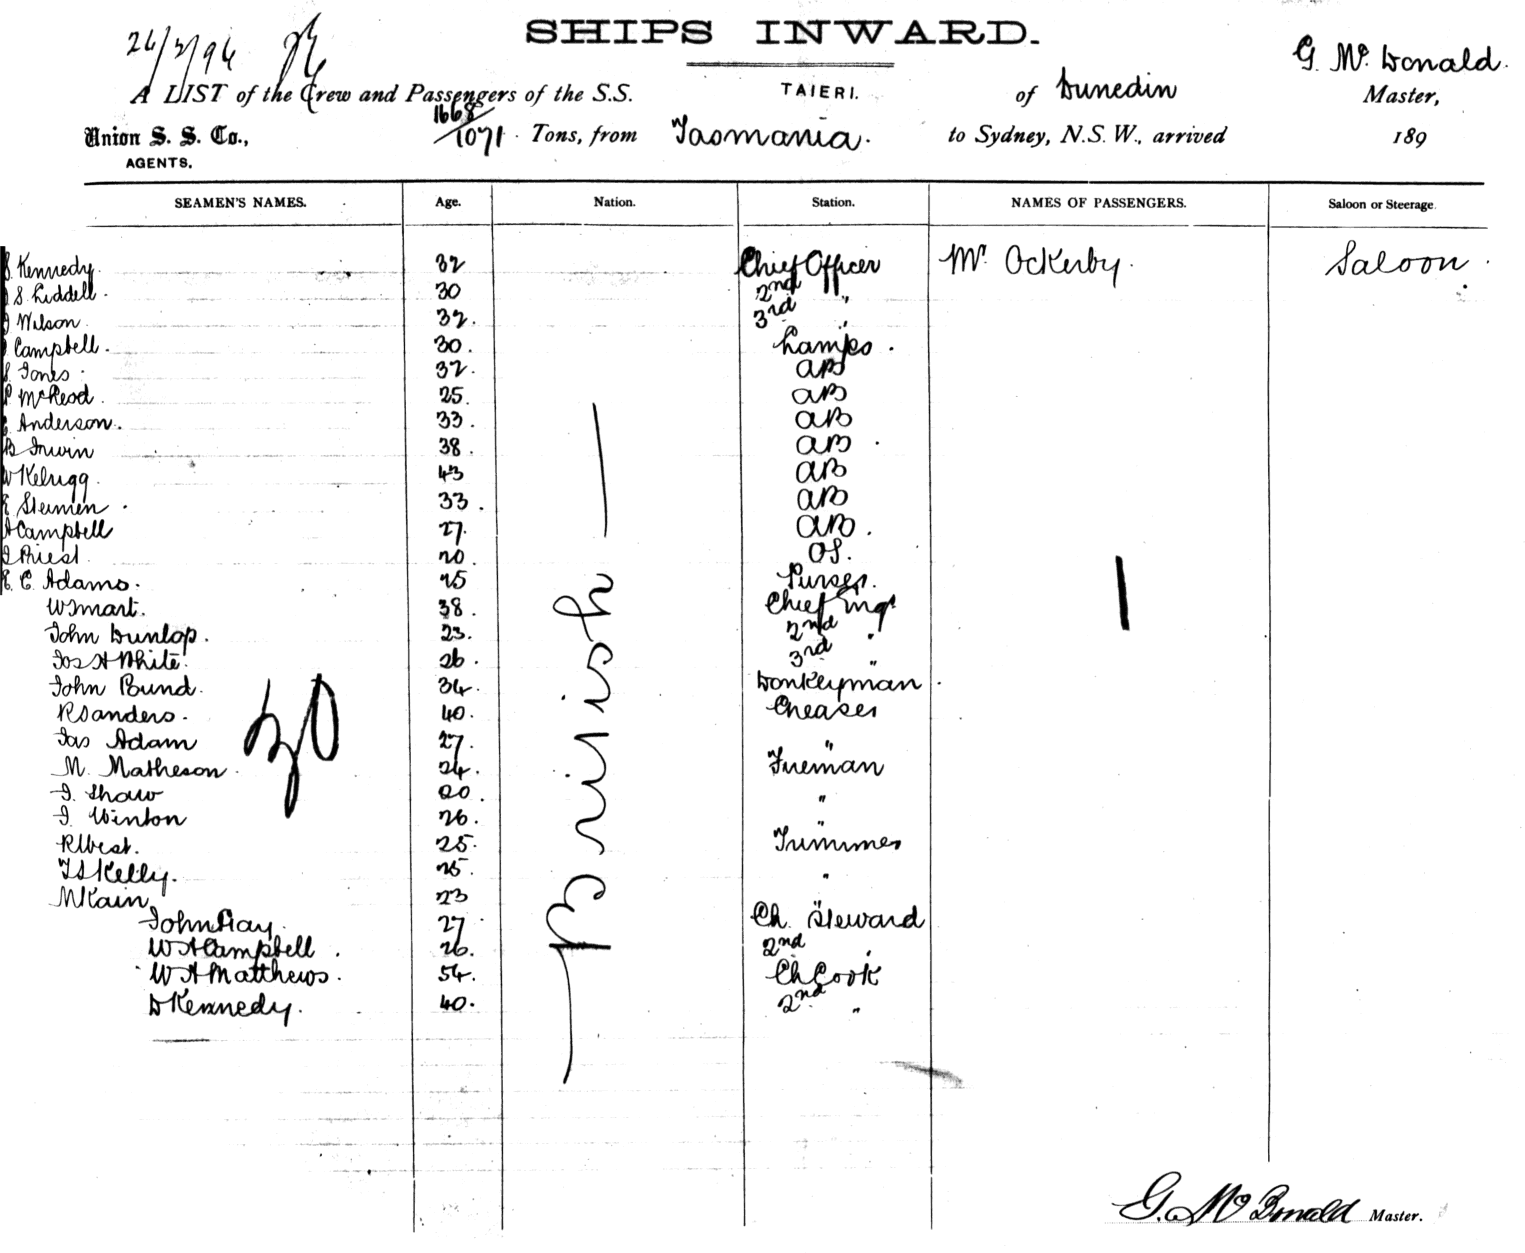 24/3/96
SHIPS INWARD.
G. Mc Donald.
A LIST of the Crew and Passengers of the S.S. TAIERI. of Dunedin Master,
Union S. S. Co., 1668/1071 Tons, from Tasmania. to Sydney, N.S.W., arrived 189
AGENTS.
SEAMEN'S NAMES. Age. Nation. Station. NAMES OF PASSENGERS. Saloon or Steerage.
Kennedy. 32 Chief Officer Mr. Ockerby. Saloon.
S. Liddell. 30 2nd "
Wilson. 32. 3rd "
Campbell. 30. Lamps.
Jones. 32. AB
McLeod. 25. AB
Anderson. 33. AB
B Irwin 38. AB
W Kelrugg. 43 AB
E Steimen 33. AB
A Campbell 27. AB.
J Priest. 20 OS.
E. C. Adams. 25 Purser.
W Smart. 38. Chief Engr
John Dunlop. 23. 2nd "
Jos H White. 26. 3rd "
John Bund. 34. Donkeyman
R Sanders. 40. Greaser
Jas Adam 27. "
M. Matheson. 24. Fireman
J. Shaw 20. "
J. Winton 26. "
R West. 25. Trimmer
T S Kelly. 25. "
M Kain 23 "
John Gay. 27 Ch. Steward
W H Campbell. 26. 2nd "
W H Matthews. 54. Ch Cook
D Kennedy. 40. 2nd "
British
30
1
G. Mc Donald Master.